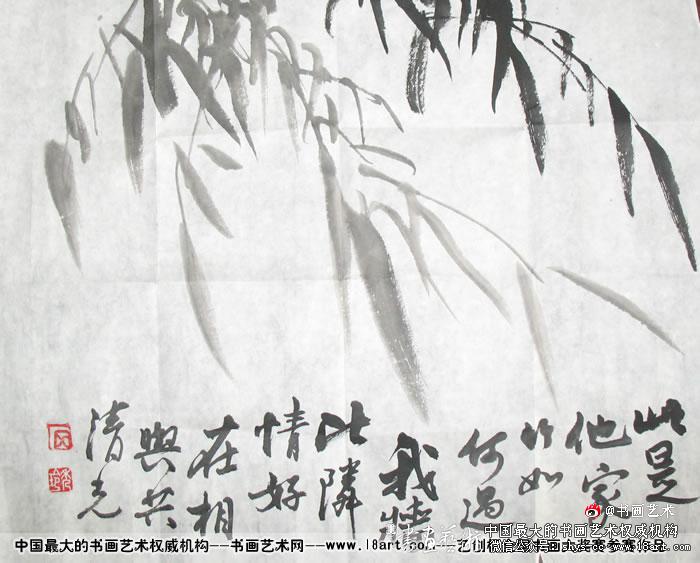 此是
他家
竹如
何過
我墙
比隣
情好
在相
與共
清光
@书画艺术
中国最大的书画艺术权威机构
中国最大的书画艺术权威机构——书画艺术网——www.18art.com